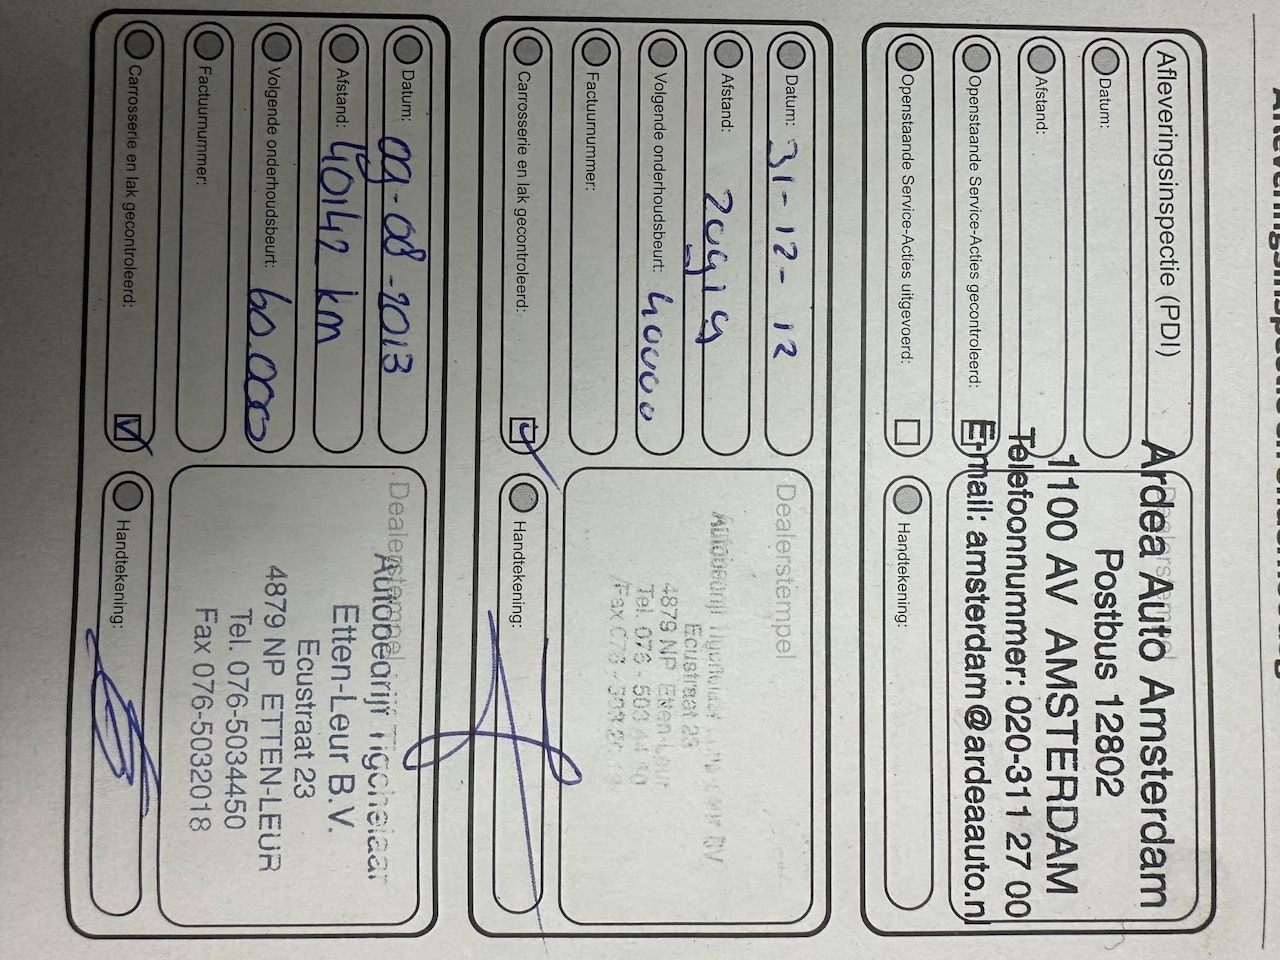 Afleveringsinspectie (PDI)
Datum:
Afstand:
Openstaande Service-Acties gecontroleerd:
Openstaande Service-Acties uitgevoerd:
Dealerstempel
Ardea Auto Amsterdam
Postbus 12802
1100 AV AMSTERDAM
Telefoonnummer: 020-311 27 00
E-mail: amsterdam@ardeaauto.nl
Handtekening:
Datum: 31-12-12
Afstand: 20919
Volgende onderhoudsbeurt: 40000
Factuurnummer:
Carrosserie en lak gecontroleerd:
Dealerstempel
Autobedrijf Tigchelaar
Ecustraat 23
4879 NP Etten-Leur
Tel. 076 - 503 44 50
Fax 076 - 503
Handtekening:
Datum: 09-08-2013
Afstand: 40142 km
Volgende onderhoudsbeurt: 60.000
Factuurnummer:
Carrosserie en lak gecontroleerd:
Dealerstempel
Autobedrijf Tigchelaar
Etten-Leur B.V.
Ecustraat 23
4879 NP ETTEN-LEUR
Tel. 076-5034450
Fax 076-5032018
Handtekening: